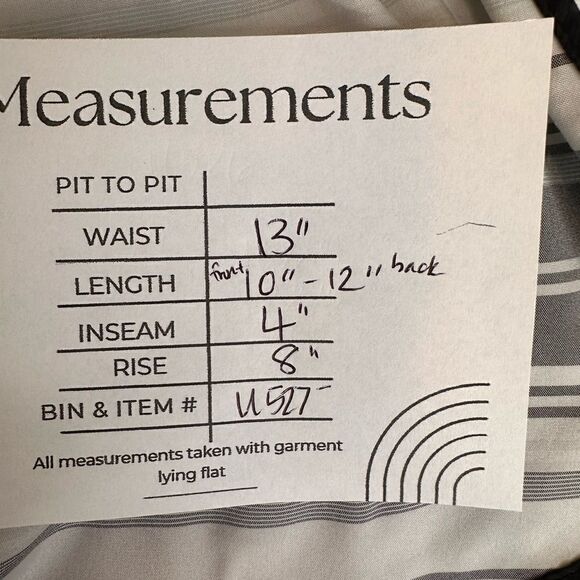 Measurements
PIT TO PIT
WAIST 13"
LENGTH front 10" - 12" back
INSEAM 4"
RISE 8"
BIN & ITEM # U527
All measurements taken with garment
lying flat